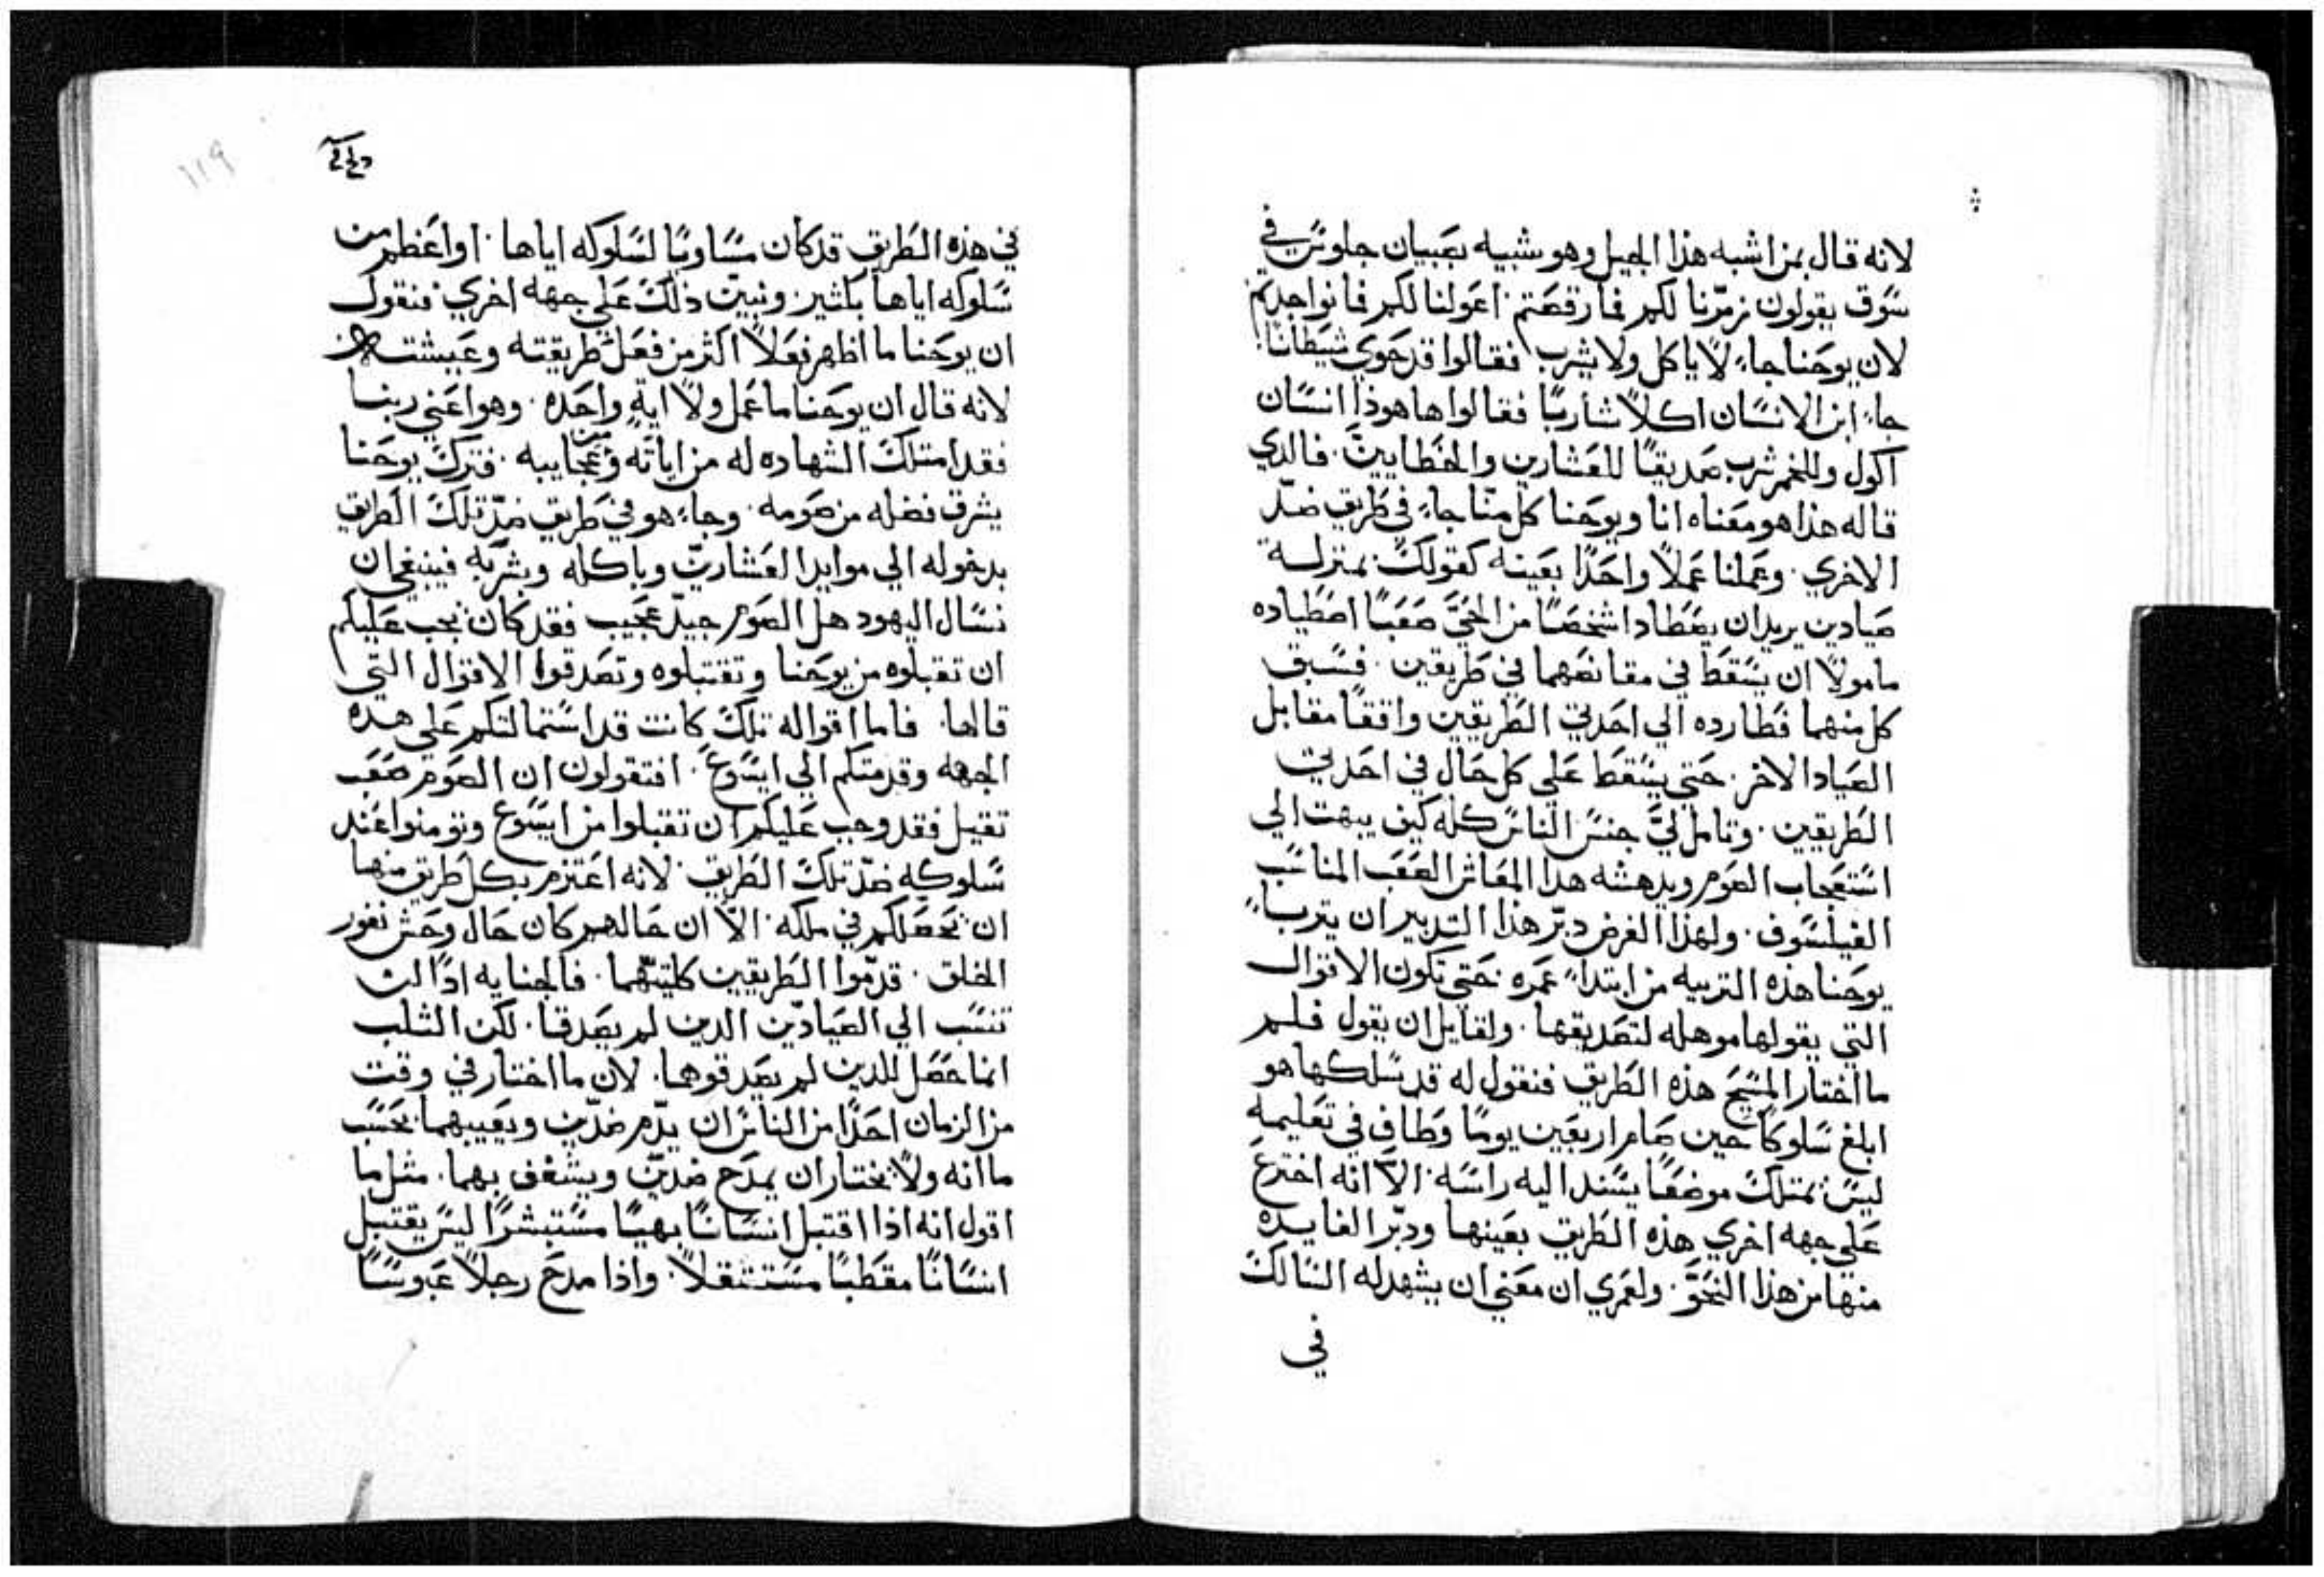 لانه قال بمن اشبه هذا الجيل وهو شبيه بصبيان جلوس في
سوق يقولون زمّرنا لكم فما رقصتم اعولنا لكم فما نواجدتم
لان يوحنا جاء لا ياكل ولا يشرب فقالوا قد حوي شيطانا
جاء ابن الانسان اكلاً شاربًا فقالوا ها هوذا انسان
اكول وللخمر شرب صديقًا للعشارين والخطايين. فالدي
قاله هذا هو معناه انا ويوحنا كل منّا جاء في طريق ضدّ
الاخري. وعملنا عملاً واحدًا بعينه كقولك بمنزلة
صيادين يريدان يصطادا شخصًا من الحيّ صعبًا اصطياده
مامولاً ان يسقط في مقانصهما في طريقين. فسبق
كل منهما فطارده الي احدي الطريقين واقفًا مقابل
الصياد الاخر. حتي يسقط علي كل حال في احدي
الطريقين. وتامل ليّ جنس الناس كله كيف يبهت الي
استعجاب الصوم ويدهشه هدا المعاش الصعب المناسب
الفيلسوف. ولهذا الغرض دبّر هذا التدبير ان يتربا
يوحنا هذه التربيه من ابتداء عمره حتي تكون الاقوال
التي يقولها موهله لتصديقها. ولقايل ان يقول فلم
ما اختار المسيح هذه الطريق فنقول له قد سلكها هو
ابلغ سلوكًا حين صام اربعين يومًا وطاف في تعليمه
ليس يمتلك موضعًا يسند اليه راسه. الاّ انه اخترع
علي جهه اخري هذه الطريق بعينها ودبّر الفايده
منها من هذا النحوّ. ولعمري ان معني ان يشهد له السالك
في
١١٩
في هذه الطريق قد كان مساويًا لسلوكه اياها. او اعظم من
سلوكه اياها بكثير. ونبين ذلك علي جهه اخري فنقول
ان يوحنا ما اظهر فعلاً اكثر من فعل طريقته وعيشته
لانه قال ان يوحنا ما عمل ولا ايةٍ واحده. وهو اعني ربنا
فقد امتلك الشهاده له من اياته ومن عجايبه. فترك يوحنا
يشرق فضله من صومه. وجاء هو في طريق ضدّ تلك الطريق
بدخوله الي موايد العشارين وباكله وبشربه فينبغي ان
نسال اليهود هل الصوم جيدّ عجيب فقد كان يجب عليكم
ان تقبلوه من يوحنا وتقتبلوه وتصدقوا الاقوال التي
قالها. فاما اقواله تلك كانت قد استمالتكم علي هده
الجهه وقدمتكم الي ايسوع. افتقولون ان الصوم صعب
تقيل فقد وجب عليكم ان تقبلوا من ايسوع وتومنوا عند
سلوكه ضدّ تلك الطريق. لانه اعتزم بكل طريق منها
ان يحصلكم في ملكه. الاّ ان حالهم كان حال وحش نفور
الخلق. قدمّوا الطريقين كلتيهما. فالجنايه ادًا لن
تنسب الي الصيادّين الدين لم يصدقا. لكن الثلب
انما حصل للدين لم يصدقوهما. لان ما اختار في وقت
من الزمان احدًا من الناس ان يذّم ضدّين ويعيبهما. بحسب
ما انه ولا يختار ان يمدح ضدين ويشغف بهما. مثل ما
اقول انه اذا اقتبل انسانًا بهيًا مستبشرًا ليس يقتبل
انسانًا مقطبًا مستثقلاً. واذا مدح رجلاً عبوسًا